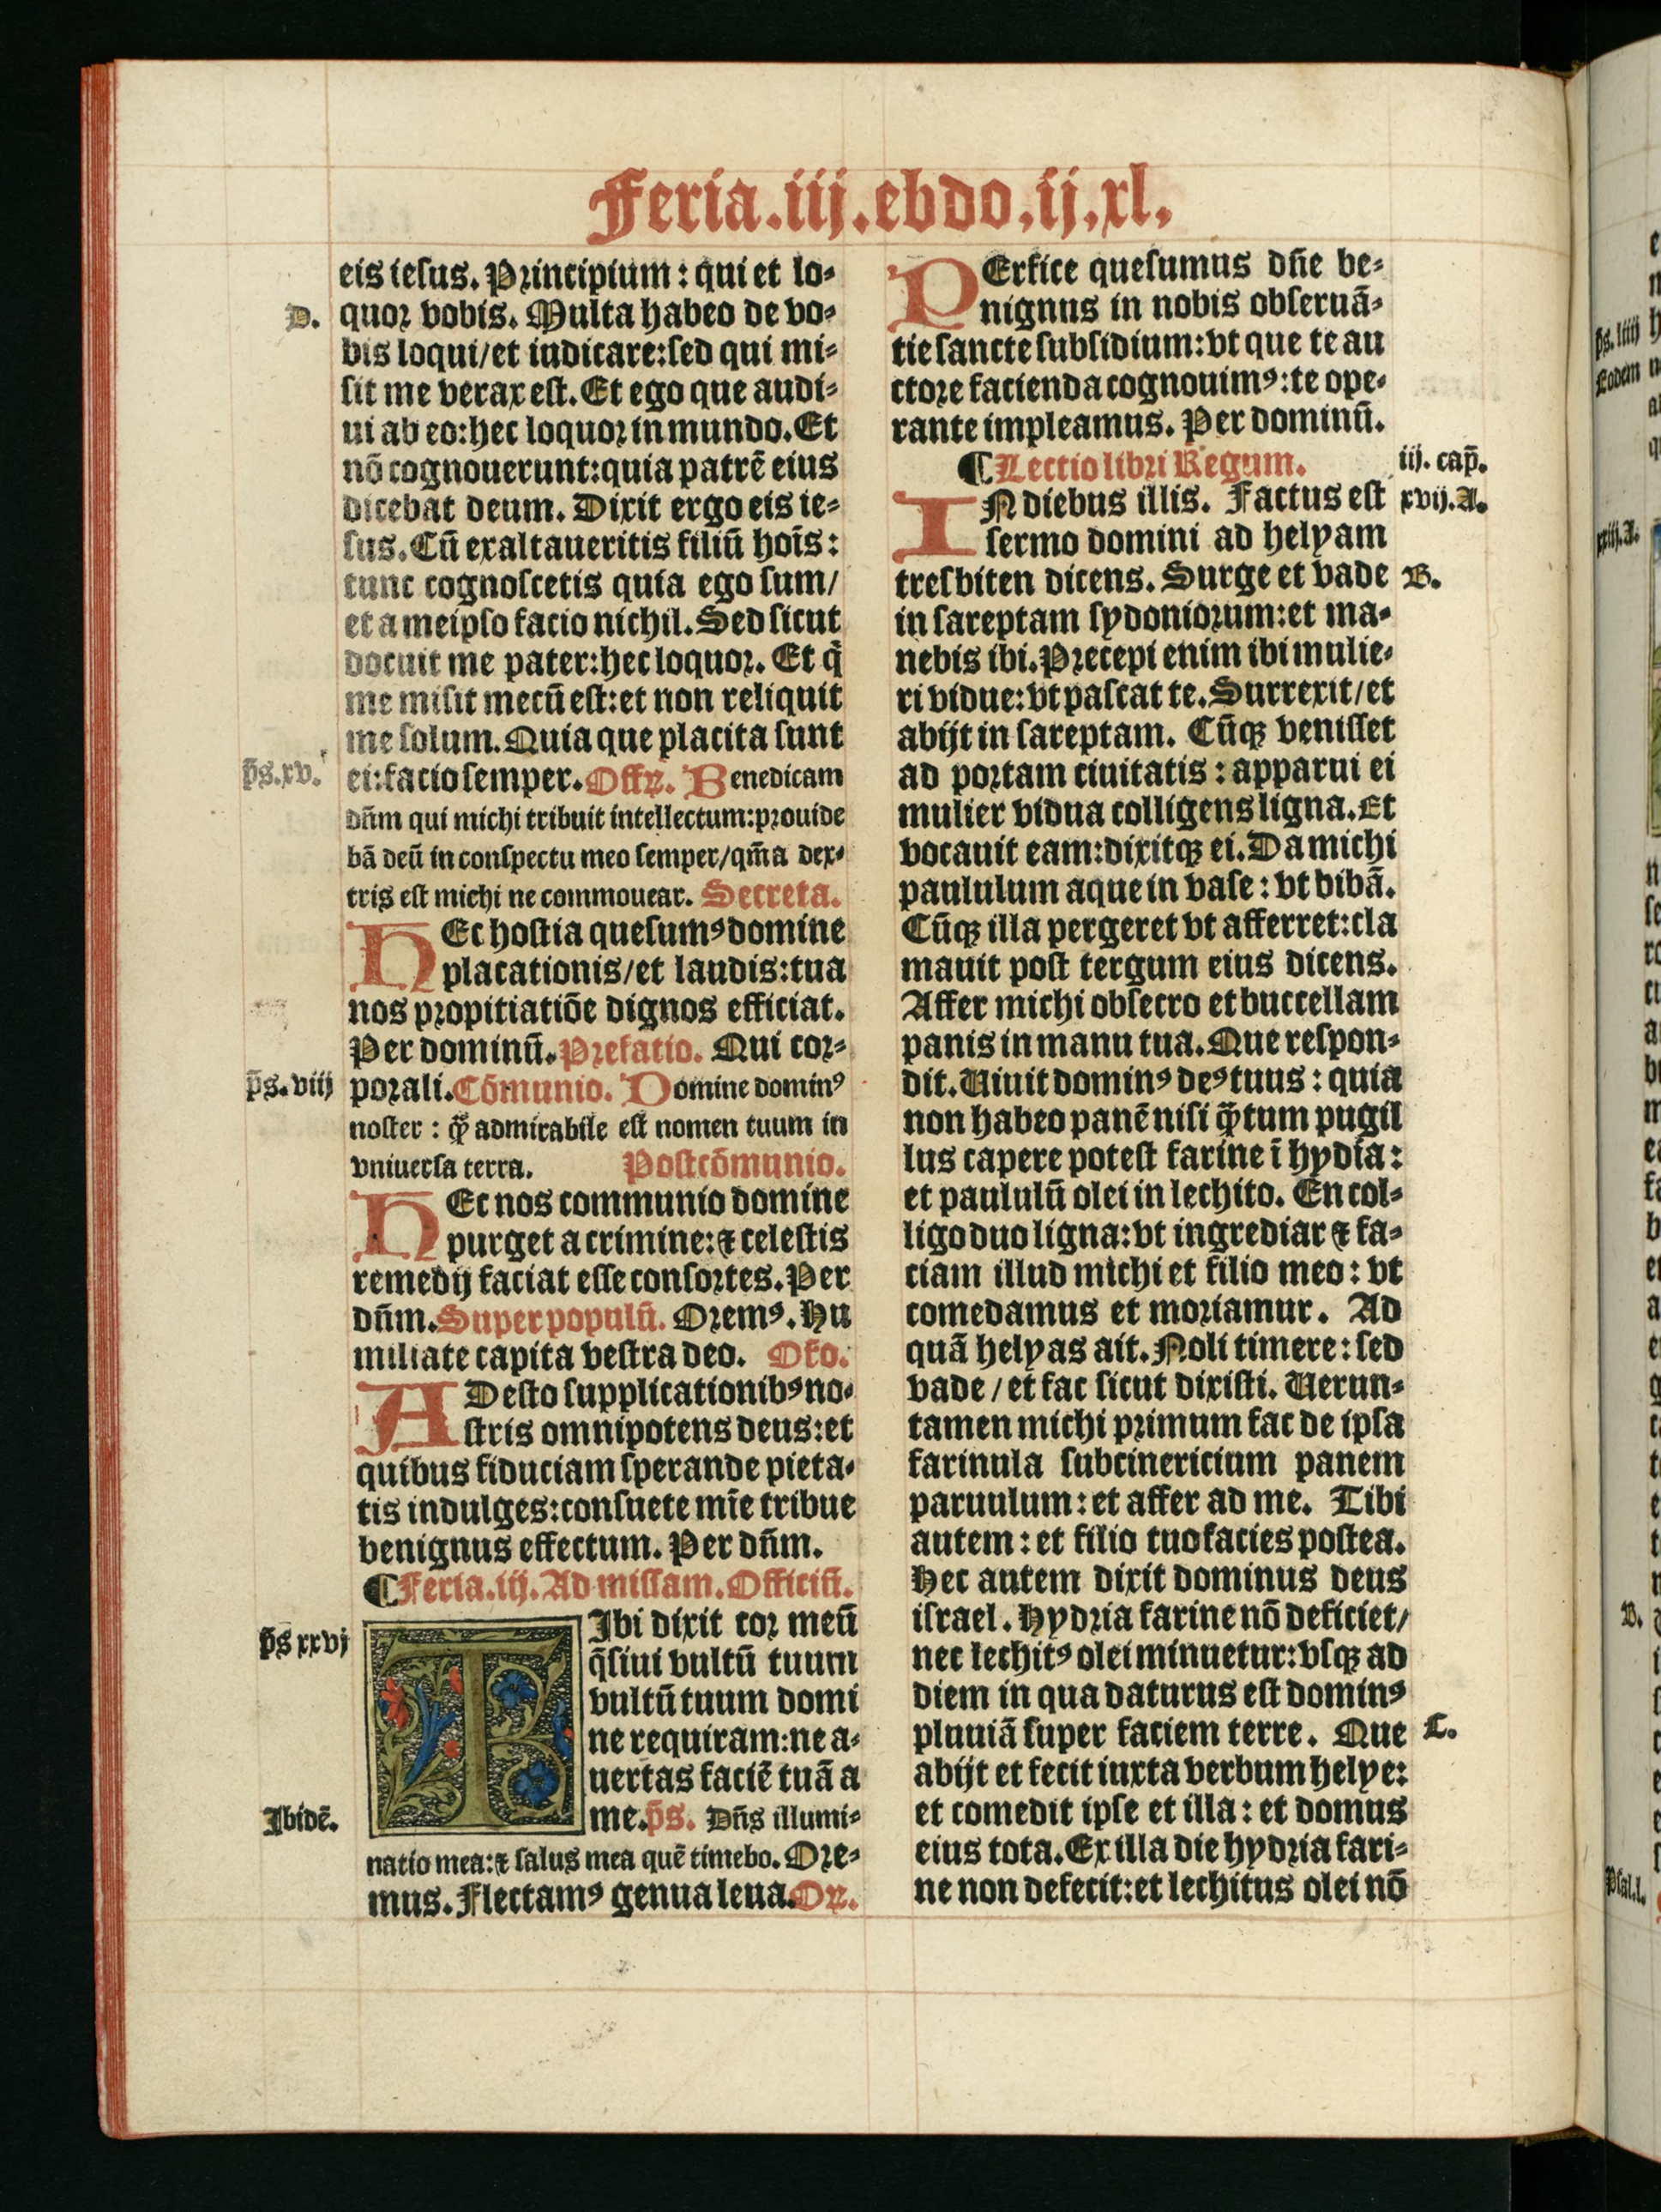 Feria.iij.ebdo.ij.xl.
eis iesus. Principium : qui et lo-
D. quor vobis. Multa habeo de vo-
bis loqui/et iudicare:sed qui mi-
sit me verax est. Et ego que audi-
ui ab eo:hec loquor in mundo. Et
nō cognouerunt:quia patrē eius
dicebat deum. Dixit ergo eis ie-
sus. Cū exaltaueritis filiū hoīs:
tunc cognoscetis quia ego sum/
et a meipso facio nichil. Sed sicut
docuit me pater:hec loquor. Et q̄
me misit mecū est:et non reliquit
me solum. Quia que placita sunt
p̄s.xv. ei:facio semper. Offꝝ. Benedicam
dn̄m qui michi tribuit intellectum:prouide
bā deū in conspectu meo semper/qm̄ a dex-
tris est michi ne commouear. Secreta.
HEc hostia quesumꝰ domine
placationis/et laudis:tua
nos propitiatiōe dignos efficiat.
Per dominū. Prefatio. Qui cor-
p̄s.viij porali. Cōmunio. Domine dominꝰ
noster : ꝙ̄ admirabile est nomen tuum in
vniuersa terra. Postcōmunio.
HEc nos communio domine
purget a crimine:⁊ celestis
remedij faciat esse consortes. Per
dn̄m. Super populū. Oremꝰ. Hu
miliate capita vestra deo. Oro.
ADesto supplicationibꝰ no-
stris omnipotens deus:et
quibus fiduciam sperande pieta-
tis indulges:consuete mīe tribue
benignus effectum. Per dn̄m.
¶Feria.iij. Ad missam. Officiū.
p̄s xxvj TIbi dixit cor meū
q̄siui vultū tuum
vultū tuum domi
ne requiram:ne a-
uertas faciē tuā a
Ibidē. me. p̄s. Dn̄s illumi-
natio mea:⁊ salus mea quē timebo. Ore-
mus. Flectamꝰ genua leua. Oꝝ.
PErfice quesumus dn̄e be-
nignus in nobis obseruā-
tie sancte subsidium:vt que te au
ctore facienda cognouimꝰ:te ope-
rante impleamus. Per dominū.
¶Lectio libri Regum. iij. cap̄.
IN diebus illis. Factus est xvij.A.
sermo domini ad helyam
tresbiten dicens. Surge et vade B.
in sareptam sydoniorum:et ma-
nebis ibi. Precepi enim ibi mulie-
ri vidue:vt pascat te. Surrexit/et
abijt in sareptam. Cūqꝫ venisset
ad portam ciuitatis : apparui ei
mulier vidua colligens ligna. Et
vocauit eam:dixitqꝫ ei. Da michi
paululum aque in vase : vt bibā.
Cūqꝫ illa pergeret vt afferret:cla
mauit post tergum eius dicens.
Affer michi obsecro et buccellam
panis in manu tua. Que respon-
dit. Uiuit dominꝰ deꝰ tuus : quia
non habeo panē nisi ꝙ̄tum pugil
lus capere potest farine ī hydīa :
et paululū olei in lechito. En col-
ligo duo ligna:vt ingrediar ⁊ fa-
ciam illud michi et filio meo : vt
comedamus et moriamur. Ad
quā helyas ait. Noli timere : sed
vade / et fac sicut dixisti. Uerun-
tamen michi primum fac de ipsa
farinula subcinericium panem
paruulum : et affer ad me. Tibi
autem : et filio tuo facies postea.
Hec autem dixit dominus deus
israel. Hydria farine nō deficiet/
nec lechitꝰ olei minuetur:vsqꝫ ad
diem in qua daturus est dominꝰ
pluuiā super faciem terre. Que C.
abijt et fecit iuxta verbum helye:
et comedit ipse et illa : et domus
eius tota. Ex illa die hydria fari-
ne non defecit:et lechitus olei nō
p̄s.liiij
Eodem
xxiij.A.
B.
Psal.l.